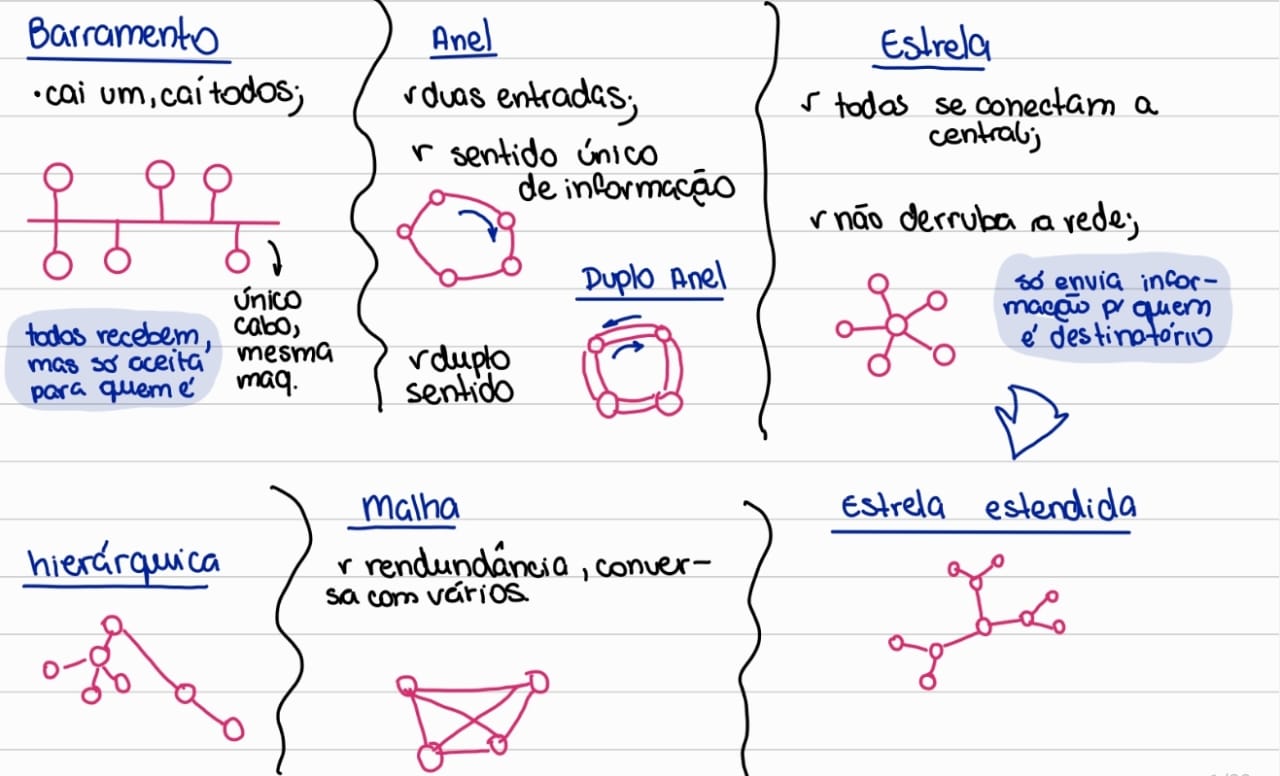 Barramento
•cai um, caí todos;
único
cabo,
mesma
maq.
todos recebem,
mas só aceita
para quem é
Anel
duas entradas;
sentido único
de informação
Duplo Anel
duplo
sentido
Estrela
todas se conectam a
central;
não derruba a rede;
só envia infor-
mação p/ quem
é destinatório
hierárquica
Malha
rendundância, conver-
sa com vários.
Estrela estendida